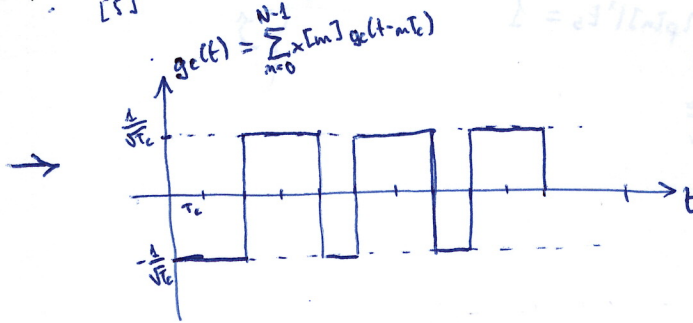 [5]
g_c(t) = \sum_{m=0}^{N-1} x[m] g_c(t-mT_c)
\frac{1}{\sqrt{T_c}}
→
T_c
t
-\frac{1}{\sqrt{T_c}}